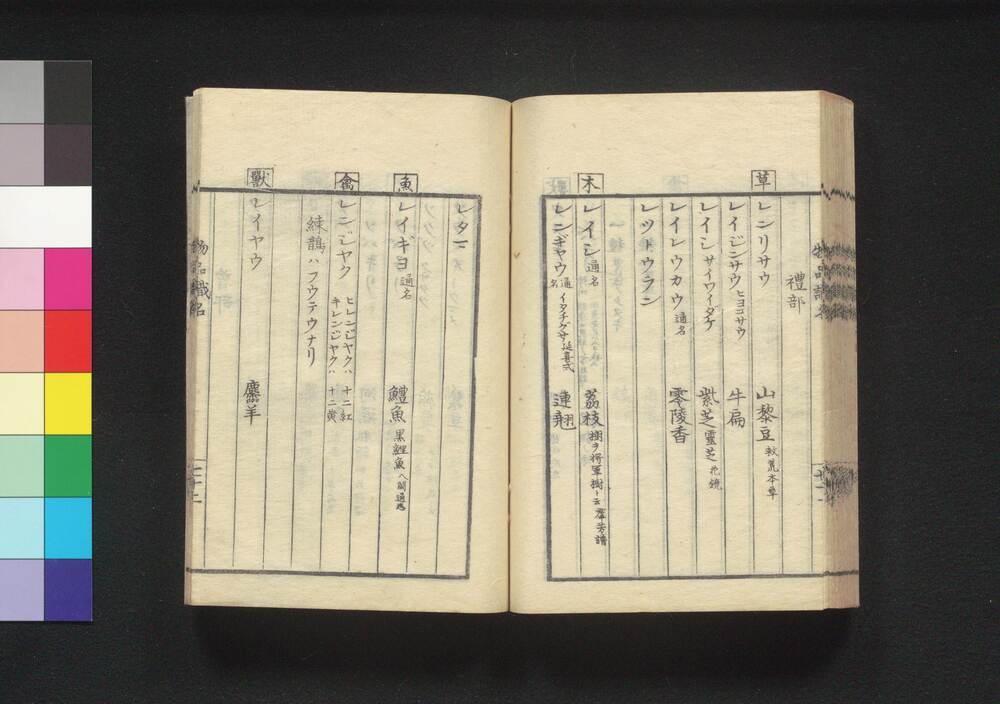 禮部
草
レンリサウ 山黎豆 救荒本草
レイジンサウ ヒヨコサウ 牛扁
レイシ サイワイダケ 紫芝 靈芝 花鏡
レイレウカウ 通名 零陵香
レツトウラン
木
レイシ 通名 荔枝 樹ヲ将軍樹ト云 羣芳譜
レンギヤウ 通名 イタチグサ 延喜式 連翹
レタマ
魚
レイギヨ 通名 鱧魚 黒鯉魚 八閩通志
禽
レンジヤク ヒレンジヤクハ 十二紅
キレンジヤクハ 十二黄
練鵲ハフウテウナリ
獸
レイヤウ 麢羊
物品識名
七十二